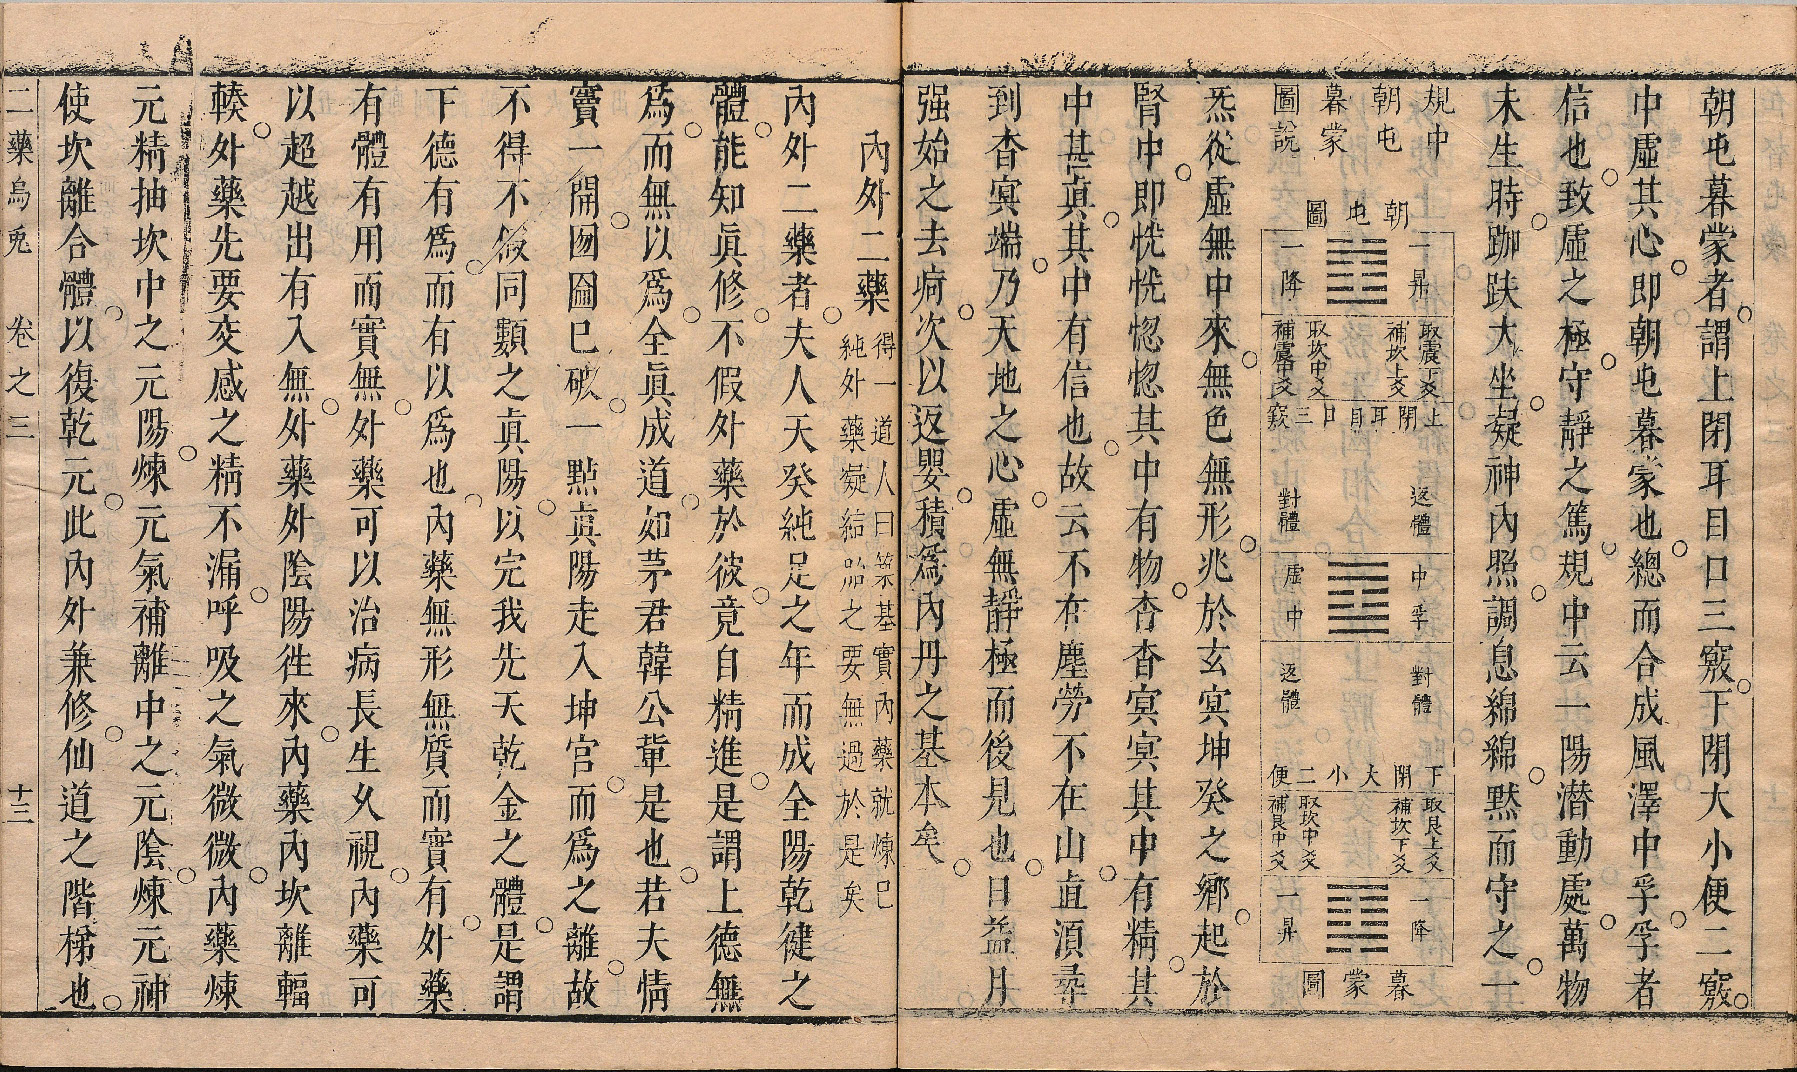 朝屯暮蒙者謂上閉耳目口三竅下閉大小便二竅
中虛其心即朝屯暮蒙也總而合成風澤中孚孚者
信也致虛之極守靜之篤規中云一陽潜動處萬物
未生時跏趺大坐凝神內照調息綿綿默而守之一
規中
朝屯
暮蒙
圖說
朝屯圖
一昇
一降
取震下爻
補坎上爻
取坎中爻
補震中爻
上閉耳目口三竅
返體
對體
中孚
中虛
對體
返體
下閉大小二便
取艮上爻
補坎下爻
取坎中爻
補艮中爻
一降
一昇
暮蒙圖
炁從虛無中來無色無形兆於玄冥坤癸之鄉起於
腎中即恍恍惚惚其中有物杳杳冥冥其中有精其
中甚真其中有信也故云不在塵勞不在山直須尋
到杳冥端乃天地之心虛無靜極而後見也日益月
强始之去疴次以返嬰積爲內丹之基本矣
內外二藥
得一道人曰築基實內藥就煉己
純外藥凝結品之要無過於是矣
內外二藥者夫人天癸純足之年而成全陽乾健之
體能知眞修不假外藥於彼竟自精進是謂上德無
爲而無以爲全眞成道如茅君韓公輩是也若夫情
竇一開囫圇巳破一點眞陽走入坤宫而爲之離故
不得不假同類之眞陽以完我先天乾金之體是謂
下德有爲而有以爲也內藥無形無質而實有外藥
有體有用而實無外藥可以治病長生久視內藥可
以超越出有入無外藥外陰陽徃來內藥內坎離輻
輳外藥先要交感之精不漏呼吸之氣微微內藥煉
元精抽坎中之元陽煉元氣補離中之元陰煉元神
使坎離合體以復乾元此內外兼修仙道之階梯也
二藥烏兎　卷之三　十三